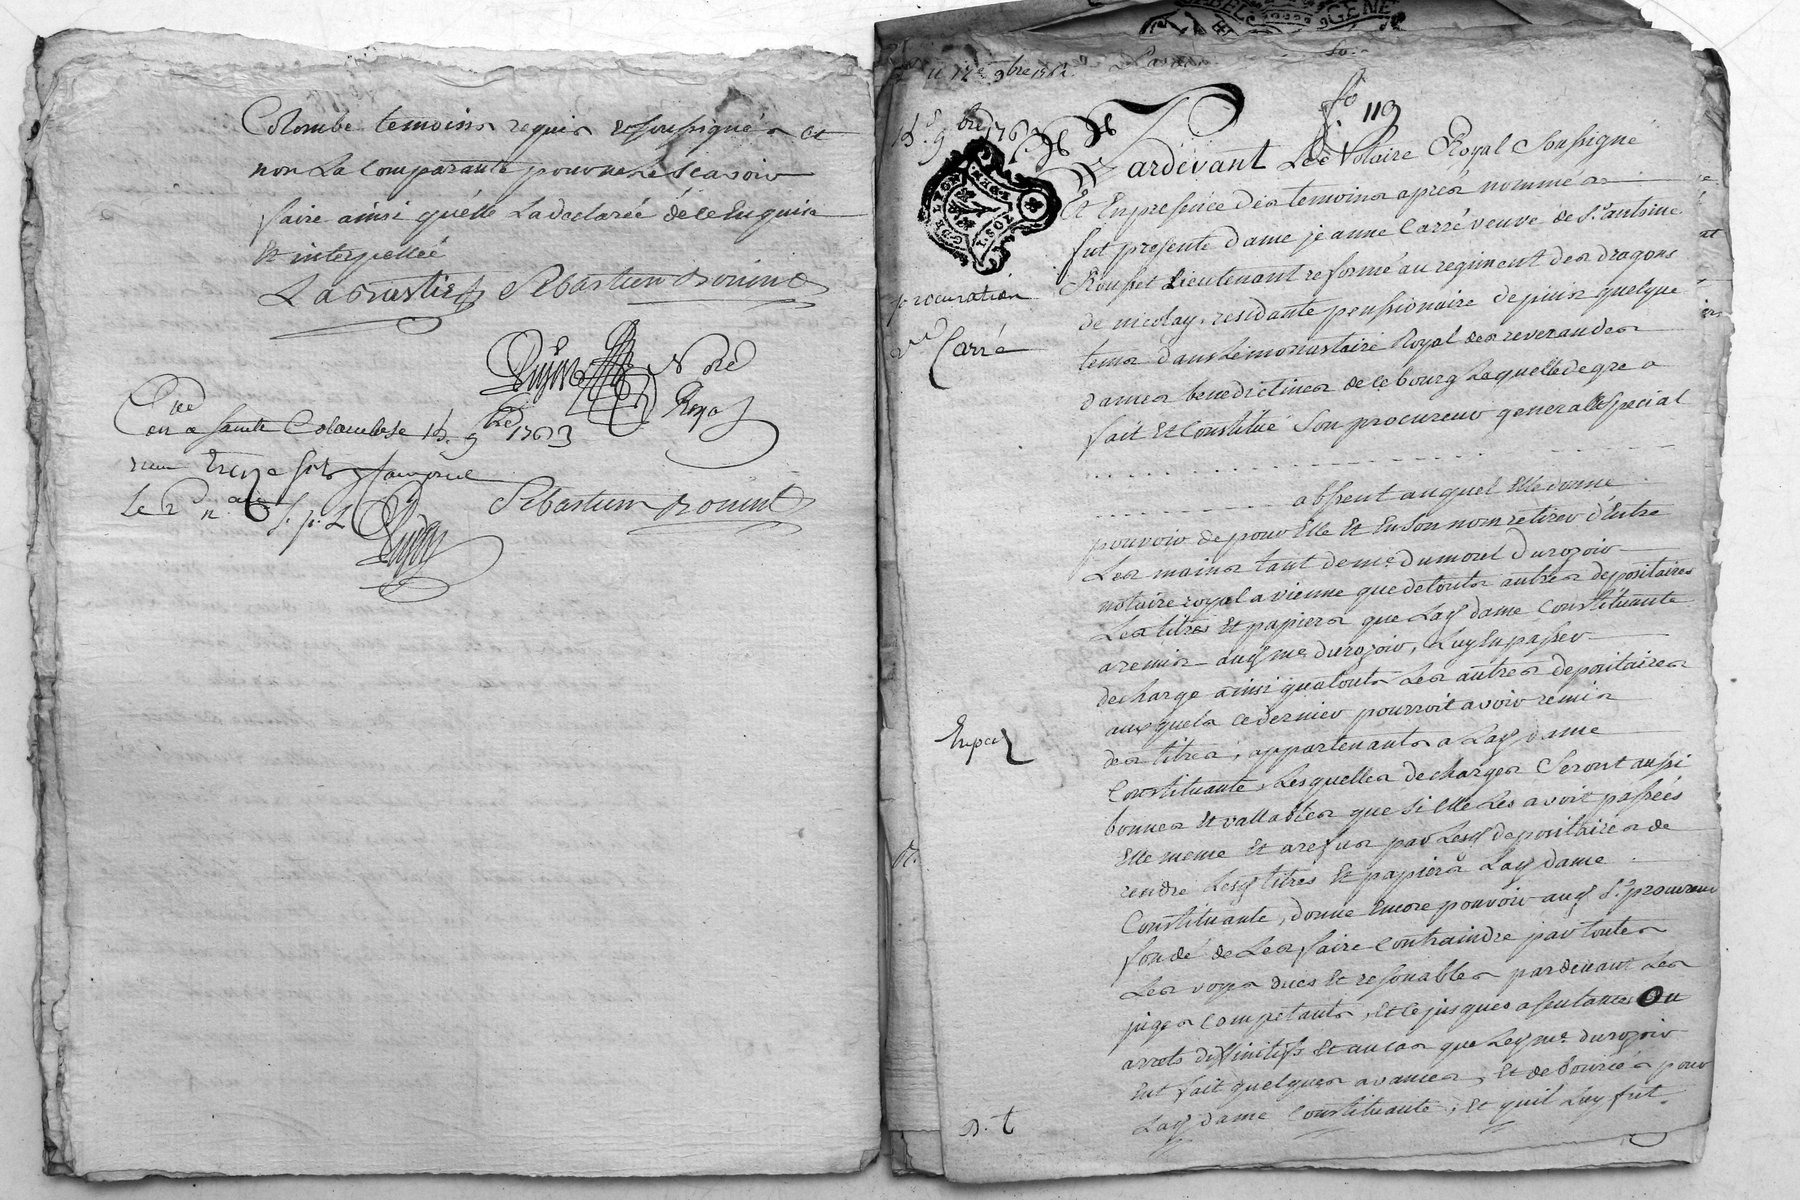 Colombe temoins requis et soussignés et
non La Comparante pour ne le Scavoir
faire ainsi quelle La declarée de ce Enquise
Et interpellée
Sebastien
N.re
Royal
a sainte Colombe le 15. 9bre 1763
reçu treize sols
Sebastien
GENE
15.e 9bre 1763
f.o 119
Pardevant Le Notaire Royal Soussigné
Et En presence des temoins aprés nommés
fut presente dame jeanne Carré veuve de S.r antoine
Lieutenant reformé au regiment des dragons
de nicolay, residante pensionaire depuis quelque
tems dans Le monastaire Royal des reverandes
dames benedictines de ce bourg Laquelle de gre a
fait Et Constitué Son procureur general Et Special
absent auquel Elle donne
pouvoir de pour Elle Et En Son nom retirer d'Entre
Les mains tant de me dumorel durozoir
notaire royal a vienne que de touts autres depositaires
Les titres Et papiers que Lad dame Constituante
a remis aud me durozoir, Luy En passer
decharge ainsi qua touts Les autres depositaires
auxquels ce dernier pourroit avoir remis
des titres, appartenants a Lad dame
Constituante, Lesquelles decharges Seront aussi
bonnes Et vallables que Si elle Les avoit passées
Elle meme Et a refus par Lesd depositaires de
rendre Lesd titres Et papiers Lad dame
Constituante, donne Encore pouvoir aud S.r procureur
fondé de Les faire Contraindre par toutes
Les voyes dues Et resonables pardevant Les
juges competants, Et ce jusques a sentances Ou
arrets diffinitifs Et au cas que Led me. durozoir
Eut fait quelques avances, Et deboursés pour
Lad dame Constituante, Et quil Luy fut
procuration
Carré